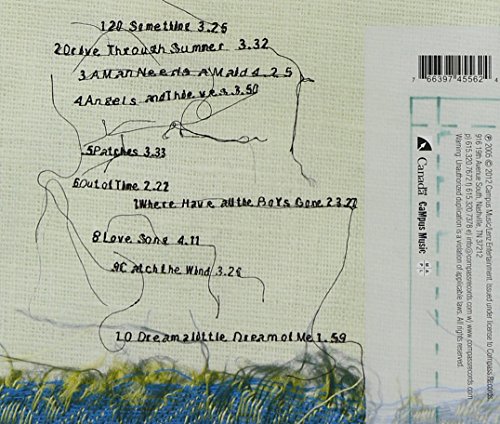 1 20 Something 3.25
2 Drive Through Summer 3.32
3 A Man Needs A Maid 4.25
4 Angels and Thieves 3.50
5 Patches 3.33
6 Out of Time 2.22
7 Where Have all the Boys Gone 2 3.27
8 Love Song 4.11
9 Catch the Wind 3.26
10 Dream a little Dream of Me 1.59
7 66397 45562 4
Canada
Campus Music
℗ 2005 © 2012 Campus Music/ Entertainment. Issued under license to Compass Records,
916 19th Avenue South, Nashville, TN 37212
p) 615.320.7672 f) 615.320.7378 e) info@compassrecords.com w) www.compassrecords.com
Warning: Unauthorized duplication is a violation of applicable laws. All rights reserved.